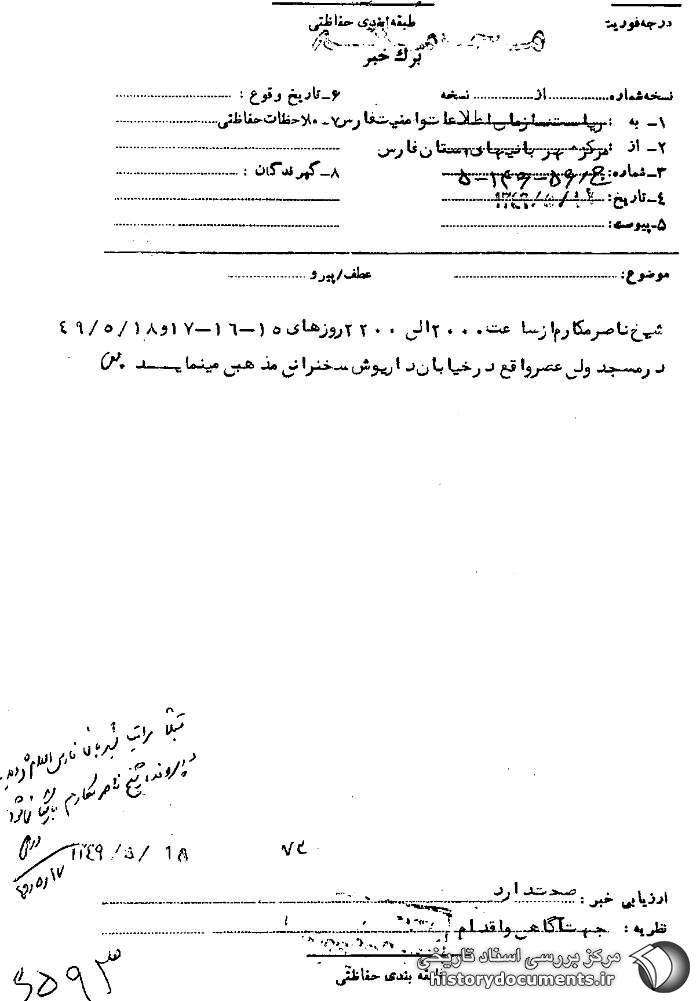 درجه فوریت
طبقه بندی حفاظتی
برگ خبر
نسخه شماره: از نسخه
۱ـ به : ریاست سازمان اطلاعات و امنیت فارس
۲ـ از : مرکز شهربانیهای استان فارس
۳ـ شماره:
۴ـ تاریخ:
۵ـ پیوست:
۶ـ تاریخ وقوع :
۷ـ ملاحظات حفاظتی
۸ـ گیرندگان :
موضوع: عطف/پیرو
شیخ ناصر مکارم از ساعت ۲۰۰۰ الی ۲۲۰۰ روزهای ۱۵-۱۶-۱۷ و ۱۸/۵/۴۹
در مسجد ولی عصر واقع در خیابان داریوش سخنرانی مذهبی مینمایـد
قبلا مراتب
در پرونده شیخ ناصر مکارم
۷۲
ارزیابی خبر : صحت دارد
نظریه : جهت آگاهی و اقدام
طبقه بندی حفاظتی
مرکز بررسی اسناد تاریخی
historydocuments.ir